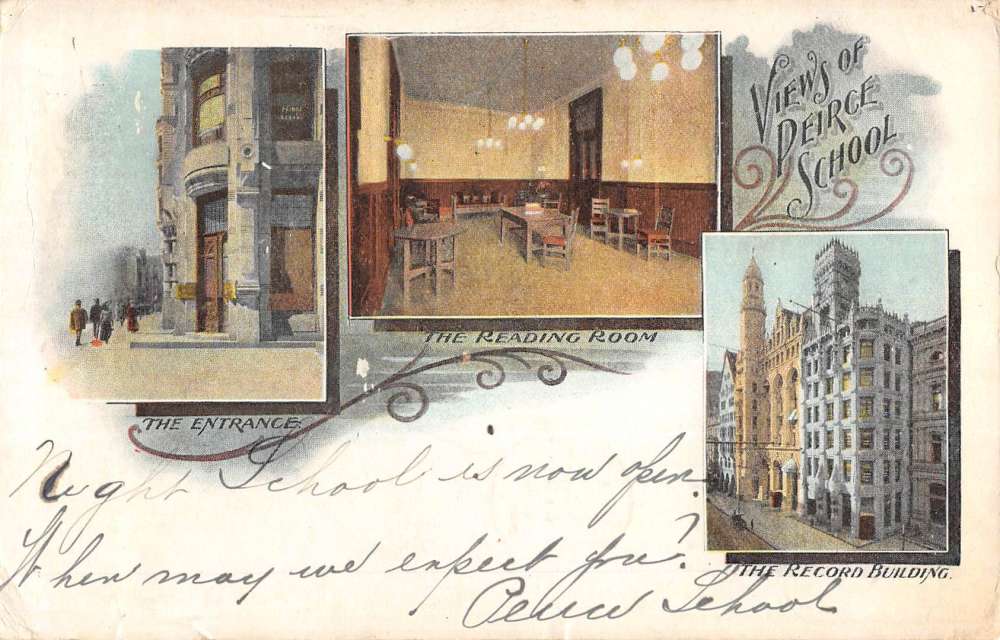 VIEWS OF
PEIRCE
SCHOOL
THE READING ROOM
THE ENTRANCE.
THE RECORD BUILDING.
Night School is now open.
When may we expect you?
Peirce School